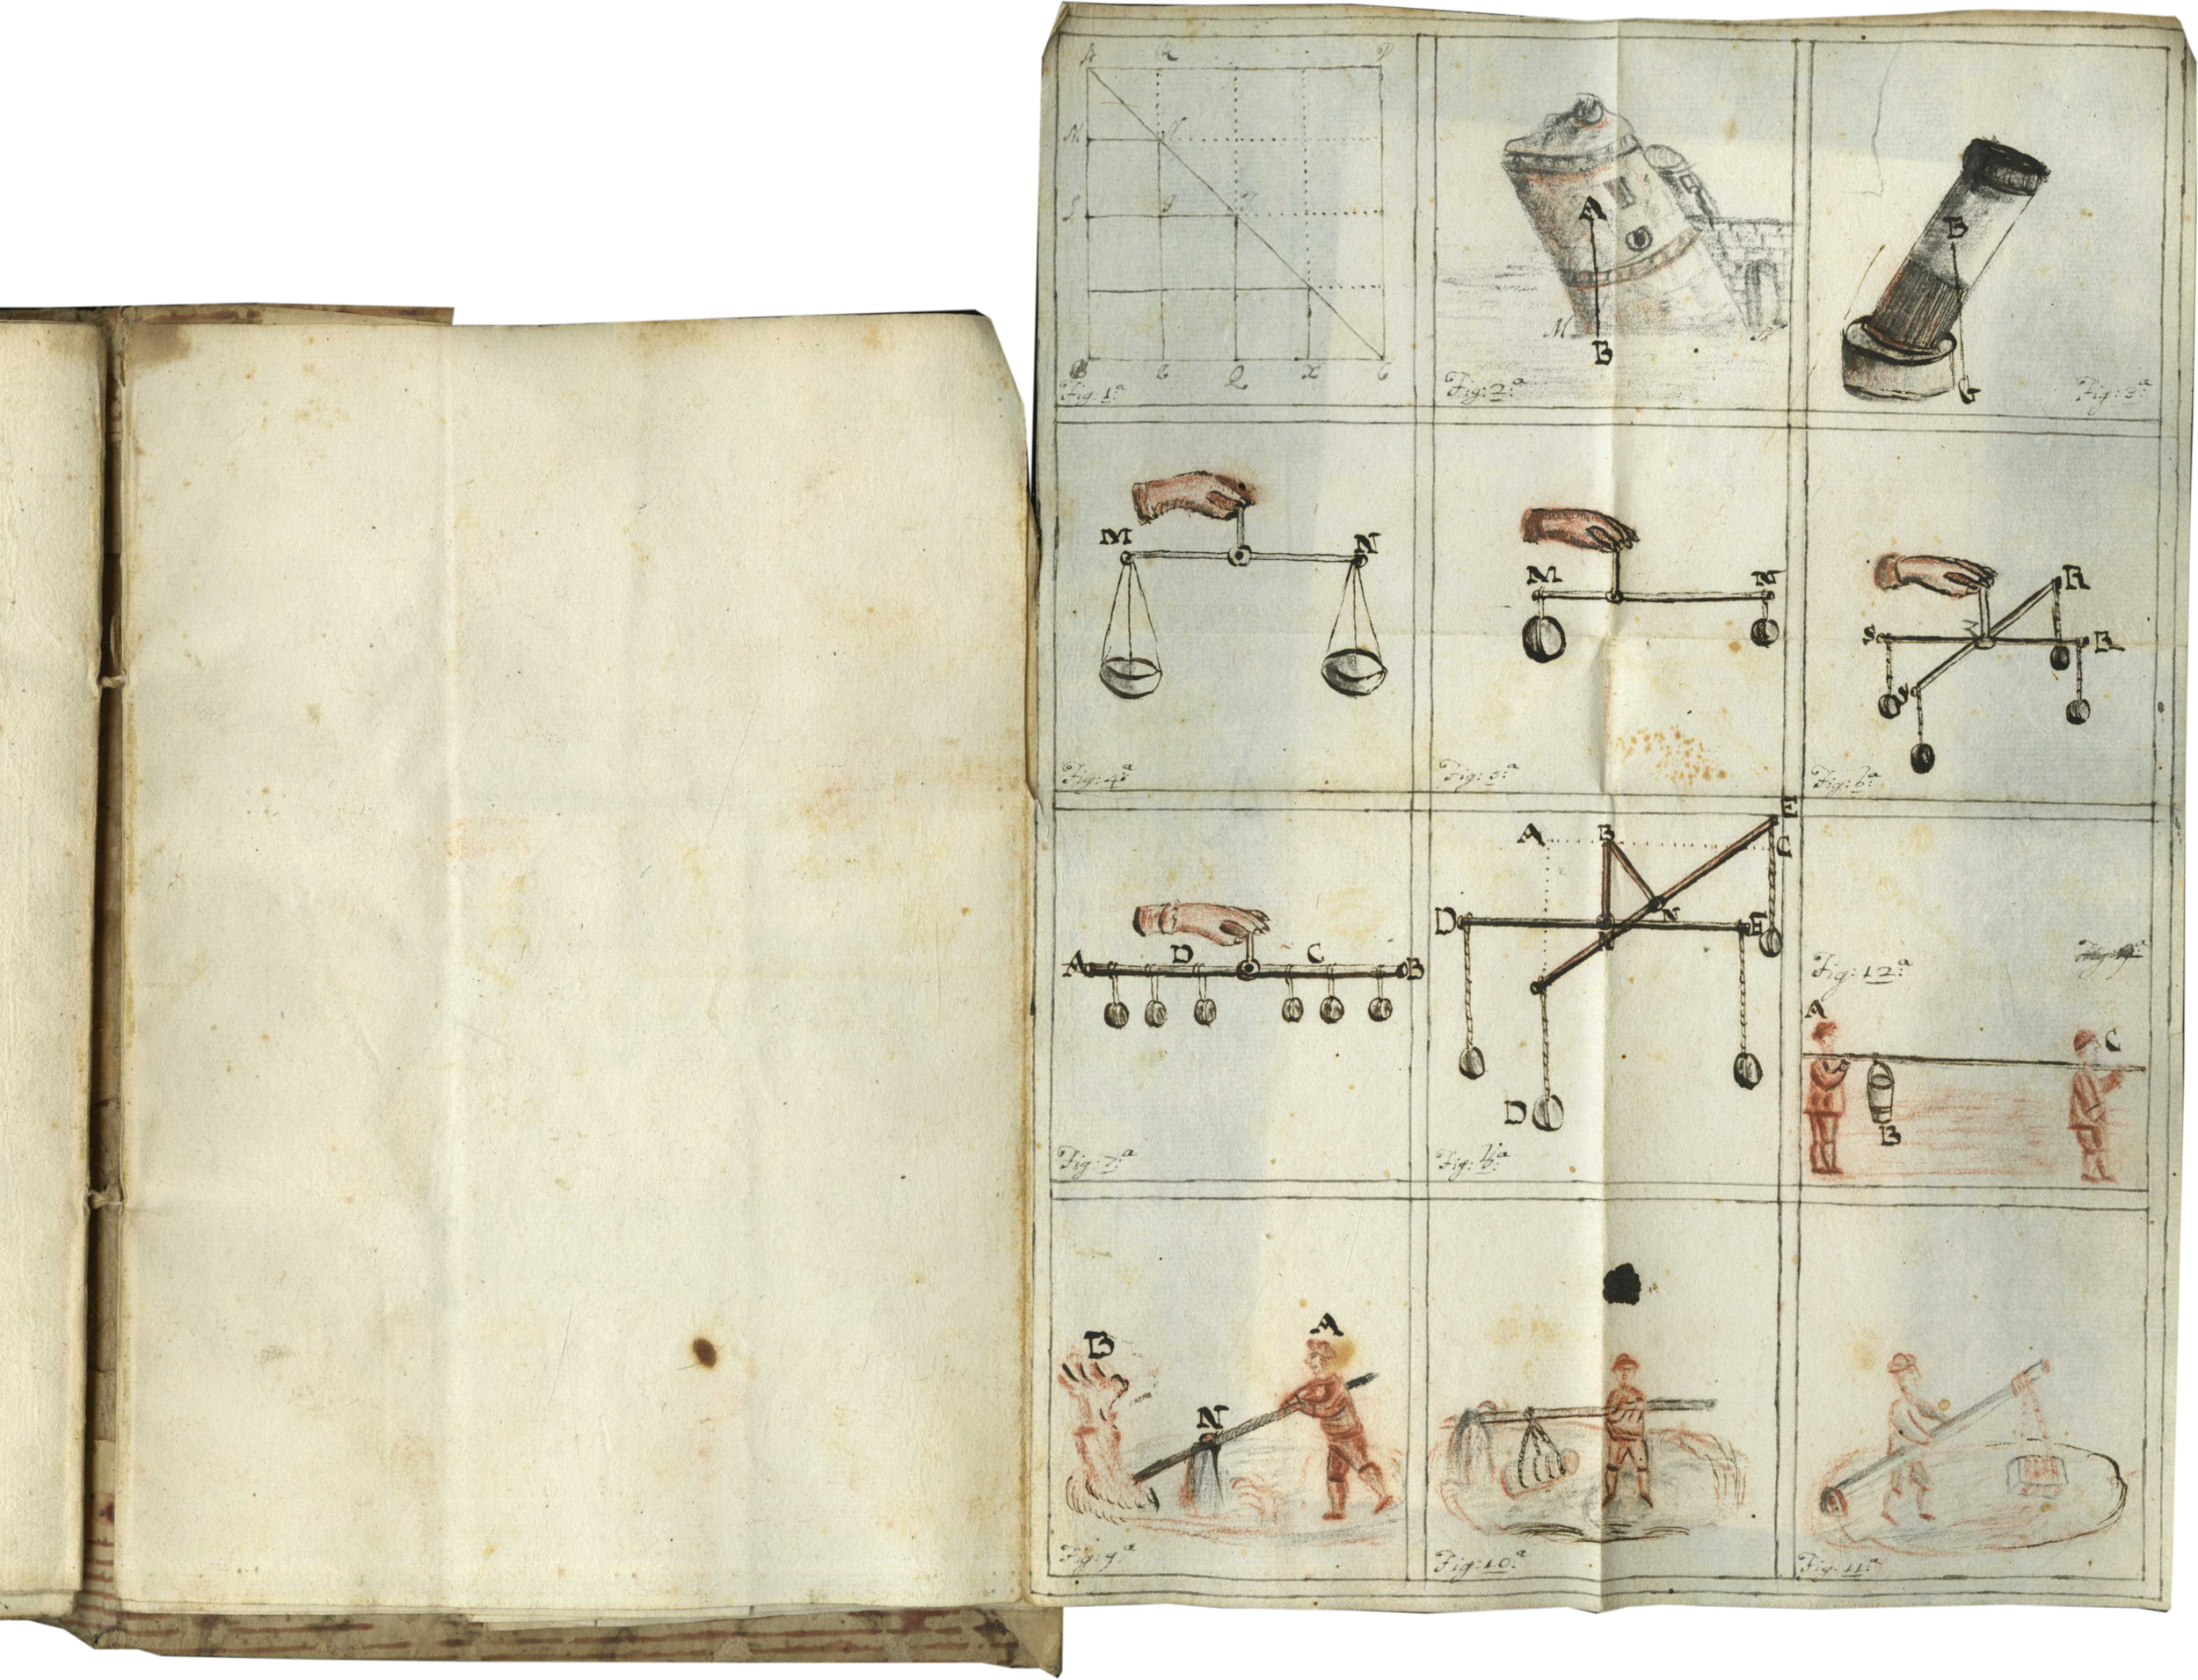 A R P
M N
S 9 T
B C Q X C
Fig: 1ª
A
M N
B
Fig: 2ª
B
G
Fig: 3ª
M N
Fig: 4ª
M N
Fig: 5ª
R
S B
S
Fig: 6ª
A D C B
Fig: 7ª
A B E
C
D N E
N
D
Fig: 8ª
Fig: 12ª
A C
B
B A
N
Fig: 9ª
Fig: 10ª
Fig: 11ª